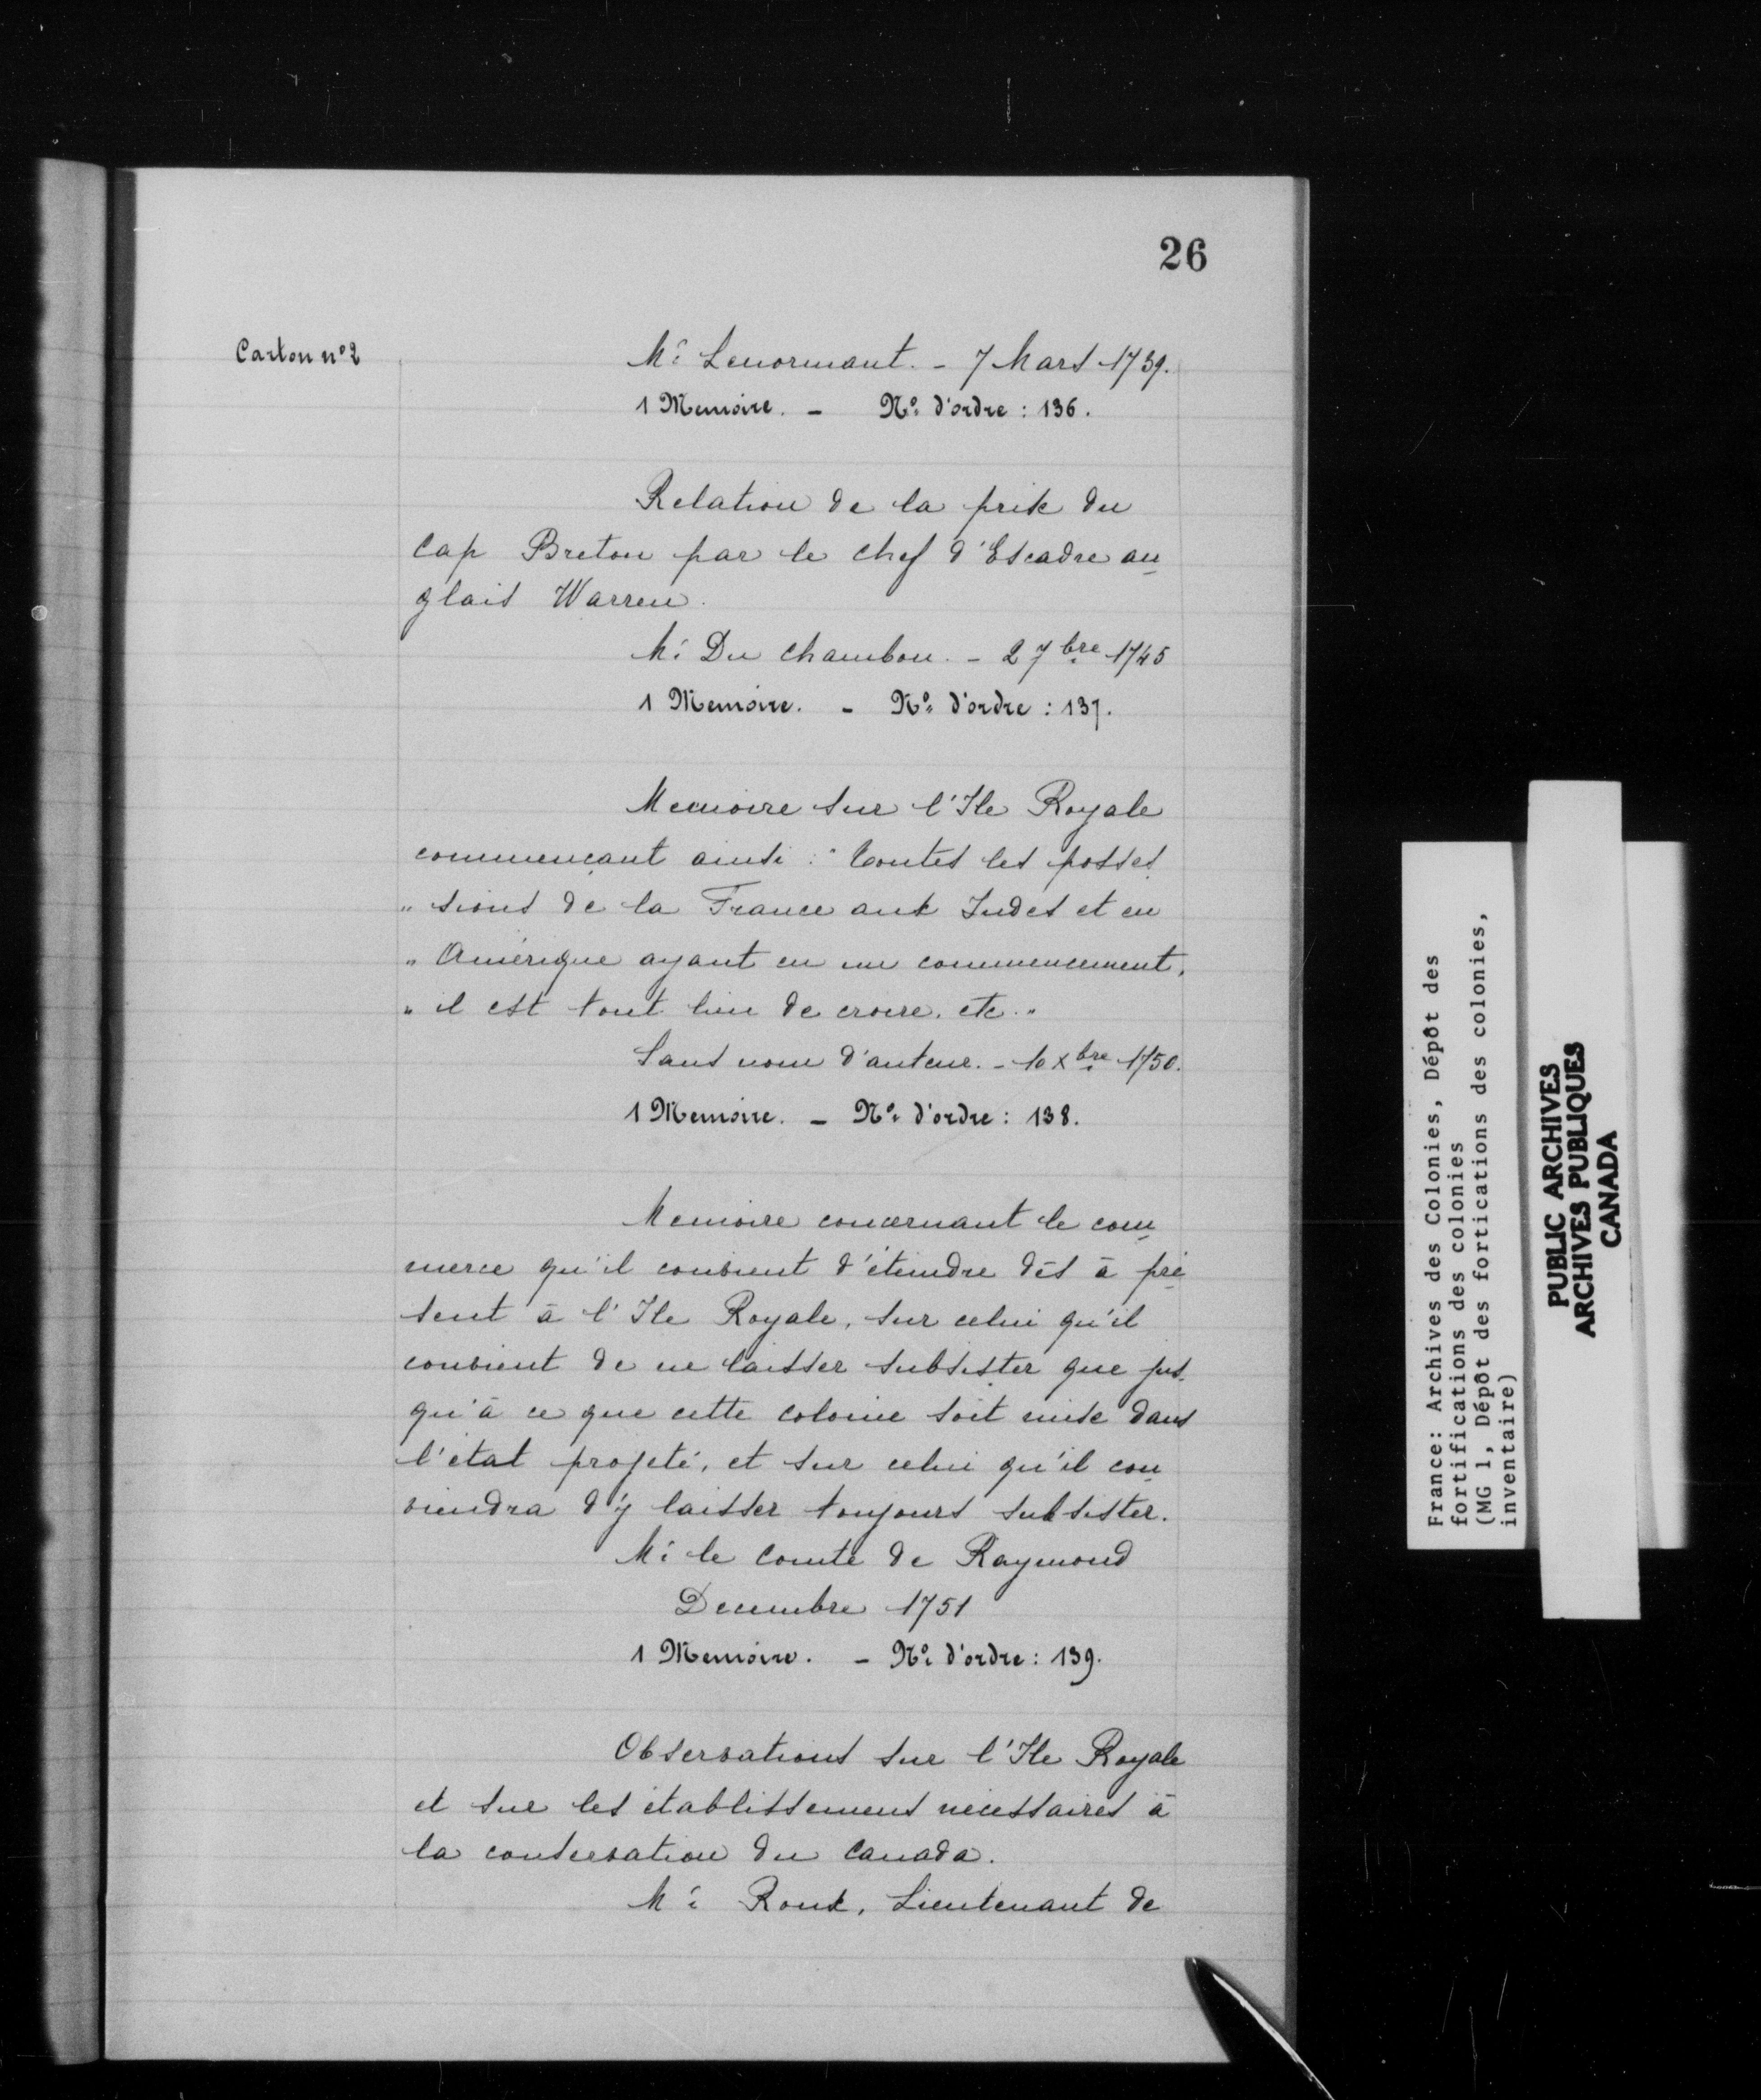 26
Carton nº 2
Mr. Lenormant. - 7 Mars 1739.
1 Memoire. - Nº. d'ordre : 136.
Relation de la prise du
Cap Breton par le Chef d'Escadre an
glais Warren.
Mr. Du Chambon. - 2 7bre 1745
1 Memoire. - Nº. d'ordre : 137.
Memoire sur l'Ile Royale
commençant ainsi : " Toutes les posses
" sions de la France aux Indes et en
" Amérique ayant eu un commencement,
" il est tout lieu de croire, etc. "
Sans nom d'auteur. - 10 Xbre 1750.
1 Memoire. - Nº. d'ordre : 138.
Memoire concernant le com
merce qu'il convient d'éteindre dès à pré
sent à l'Ile Royale, sur celui qu'il
convient de ne laisser subsister que jus
qu'à ce que cette colonie soit mise dans
l'état projeté, et sur celui qu'il con
viendra d'y laisser toujours subsister.
Mr. le Comte de Raymond
Decembre 1751
1 Memoire. - Nº. d'ordre : 139.
Observations sur l'Ile Royale
et sur les établissemens nécessaires à
la conservation du Canada.
Mr. Roux, Lieutenant de
France: Archives des Colonies, Dépôt des
fortifications des colonies
(MG 1, Dépôt des fortications des colonies,
inventaire)
PUBLIC ARCHIVES
ARCHIVES PUBLIQUES
CANADA